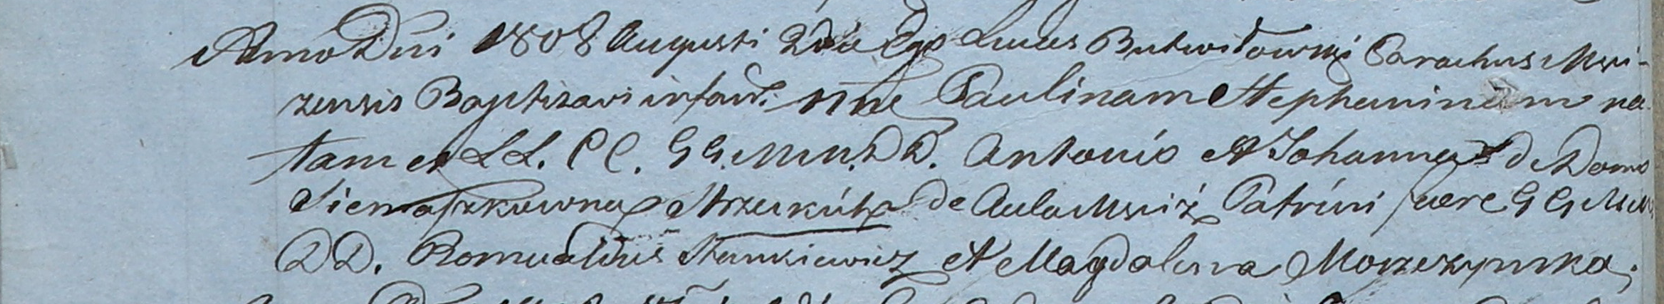 Anno Dni 1808 Augusti 2da Ego Lucas Butwiłowski Parachus Msci-
zensis Baptisavi infant. nne Paulinam Stephaninam na
tam ex LL. CC. GG. MM. DD. Antonio et Johanna de Domo
Siemaszkowna de Aula Msciż Patrini fuere GG MM
DD. Romualdus Stankiewicz et Magdalena Morzczynska,